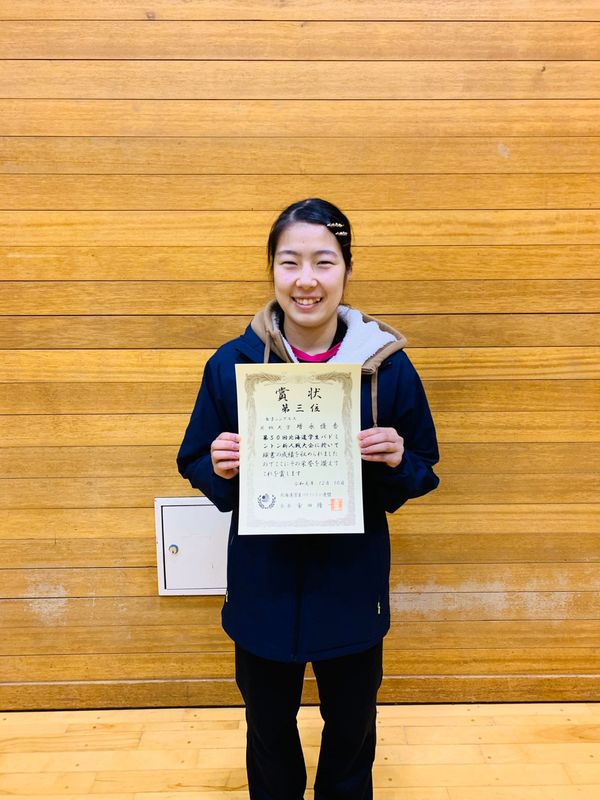 賞状
第三位
女子シングルス
第50回北海道学生バドミ
ントン新人戦大会に於いて
頭書の成績を収められました
のでここにその栄誉を讃えて
これを賞します
令和元年12月10日
北海道学生バドミントン連盟